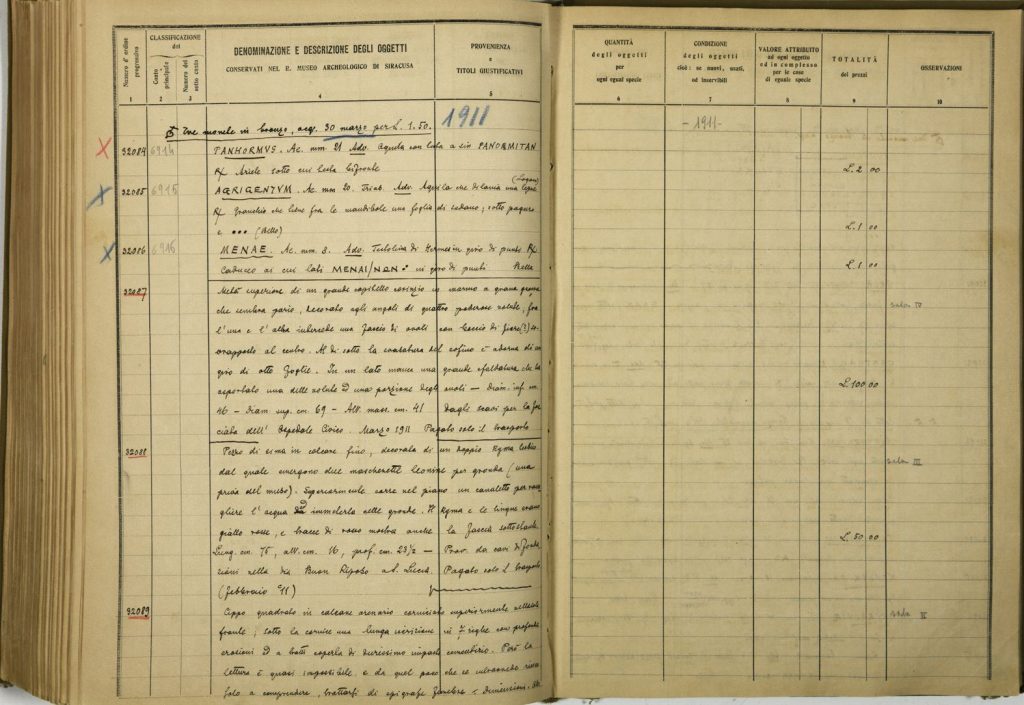 Numero d'ordine progressivo
CLASSIFICAZIONE
del
Conto principale
Numero del sotto conto
DENOMINAZIONE E DESCRIZIONE DEGLI OGGETTI
CONSERVATI NEL R. MUSEO ARCHEOLOGICO DI SIRACUSA
PROVENIENZA
e
TITOLI GIUSTIFICATIVI
1 2 3 4 5
Tre monete in bronzo, acq. 30 marzo per L. 1.50. 1911
32084 6914 PANHORMVS. Ae. mm 21 Adv. aquila con testa a sin PANORMITAN
R/ Ariete sotto cui testa bifronte
32085 6915 AGRIGENTVM. Ae mm 20. Trias. Adv. Aquila che dilania una lepre
R/ Granchio che tiene fra le mandibole una foglia di sedano; sotto paguro
e ••• (Bello)
32086 6916 MENAE. Ae. mm. 3. Adv. Testolina di Hermes in giro di punti R/
Caduceo ai cui lati MENAI/NΩN: in giro di punti Bello
32087 Metà superiore di un grande capitello corinzio in marmo a grana grossa
che sembra pario, decorato agli angoli di quattro poderose volute, fra
l'una e l'altra intercede una fascia di ovoli con boccio di fiore(?)
sovrapposto al centro. Al di sotto la del cofino è adorna di un
giro di otto foglie. In un lato manca una grande sfaldatura che ha
asportato una delle volute ed una porzione degli ovoli — Diam. inf. cm.
46 – Diam sup. cm. 69 – Alt. mass. cm. 41 Dagli scavi per la fac
ciata dell' Ospedale Civico. Marzo 1911 Pagato solo il trasporto
32088 Pezzo di sima in calcare fino, decorata di un doppio kyma lesbio
dal quale emergono due mascherette leonine per gronda (una
priva del muso). Superiormente corre nel piano un canaletto per racco
gliere l'acqua ed immeterla nelle gronde. Il kyma e le lingue erano
giallo rosse, e tracce di rosso mostra anche la fascia sottostante.
Lung. cm. 75, alt. cm. 16, prof. cm. 23½ — Prov. da cavi di fonda
zioni nella via Buon Riposo a S. Lucia. Pagato solo il trasporto
(febbraio 911)
32089 Cippo quadrato in calcare arenario corniciato superiormente nella
fronte; sotto la cornice una lunga iscrizione in 7 righe con profonde
erosioni ed a tratti coperta di durissimo impasto cementizio. Però la
lettura è quasi impossibile e da quel poco che se intravvede
solo a comprendere, trattarsi di epigrafe funebre — Dimensioni.
QUANTITÀ
degli oggetti
per
ogni egual specie
CONDIZIONE
degli oggetti
cioè: se nuovi, usati,
od inservibili
VALORE ATTRIBUITO
ad ogni oggetto
od in complesso
per le cose
di eguale specie
TOTALITÀ
dei prezzi
OSSERVAZIONI
6 7 8 9 10
- 1911 -
L. 2 00
L. 1 00
L. 1 00
sala IV
L. 100 00
sala III
L. 50 00
sala V